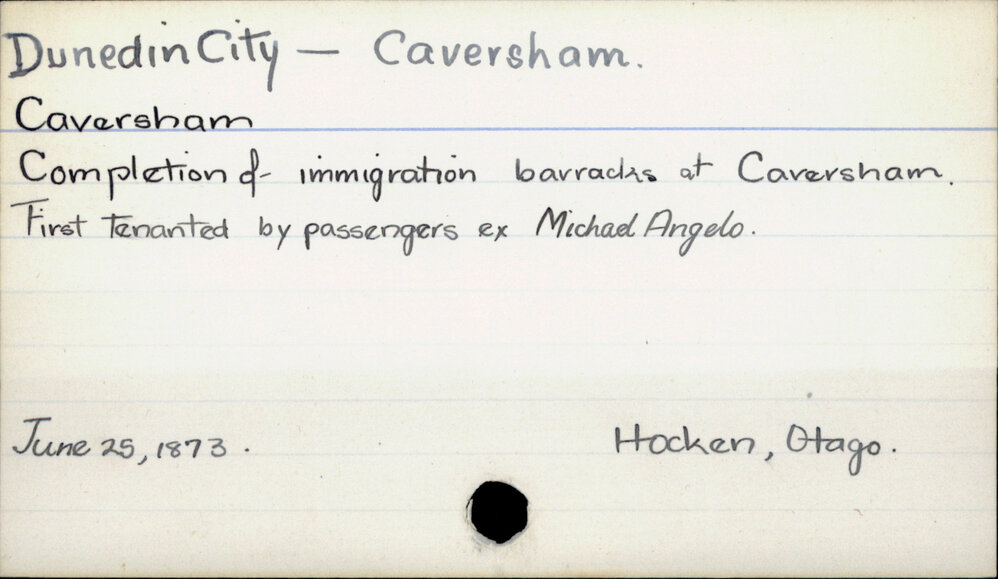 Dunedin City — Caversham.
Caversham
Completion of immigration barracks at Caversham.
First tenanted by passengers ex Michael Angelo.
June 25, 1873.
Hocken, Otago.